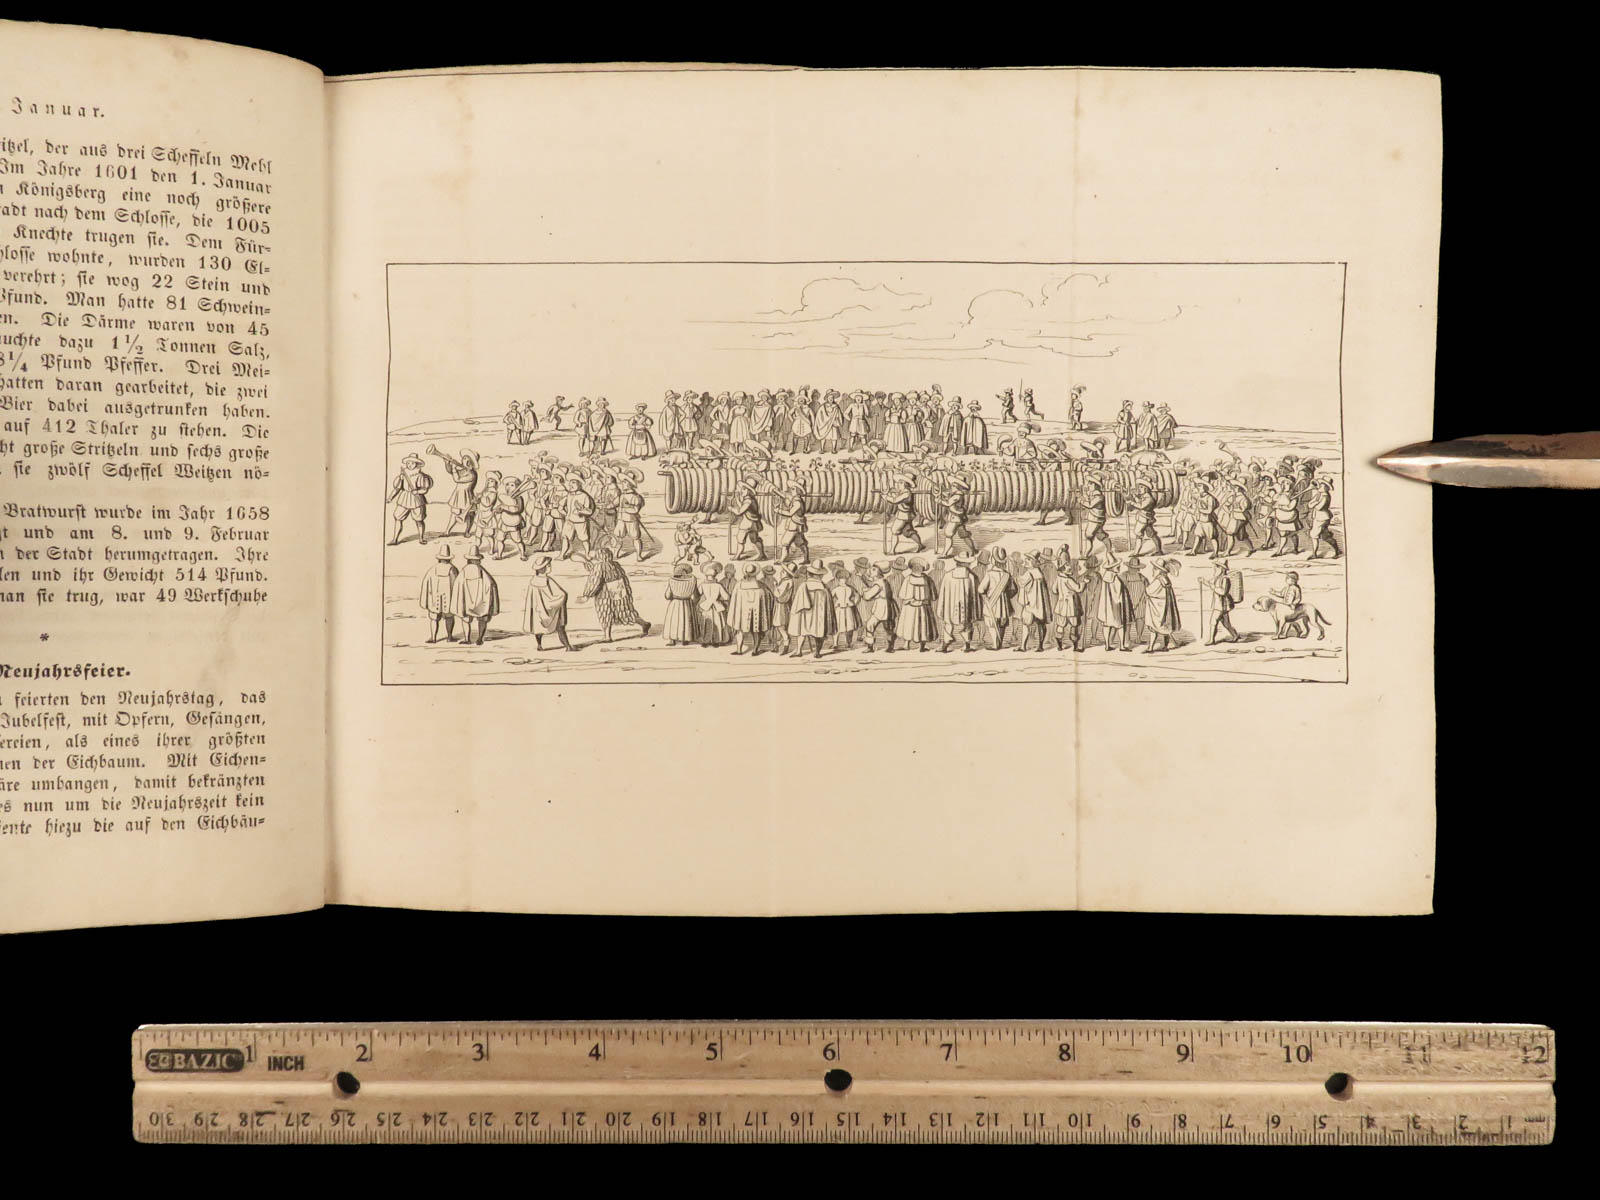 Januar.
itzel, der aus drei Scheffeln Mehl
Im Jahre 1601 den 1. Januar
n Königsberg eine noch größere
tadt nach dem Schlosse, die 1005
Knechte trugen sie. Dem Für-
hlosse wohnte, wurden 130 El-
verehrt; sie wog 22 Stein und
Pfund. Man hatte 81 Schwein-
en. Die Därme waren von 45
auchte dazu 1½ Tonnen Salz,
8¼ Pfund Pfeffer. Drei Mei-
hatten daran gearbeitet, die zwei
Bier dabei ausgetrunken haben.
auf 412 Thaler zu stehen. Die
cht große Stritzeln und sechs große
sie zwölf Scheffel Weitzen nö-
Bratwurst wurde im Jahr 1658
gt und am 8. und 9. Februar
n der Stadt herumgetragen. Ihre
llen und ihr Gewicht 514 Pfund.
man sie trug, war 49 Werkschuhe
*
Neujahrsfeier.
n feierten den Neujahrstag, das
Jubelfest, mit Opfern, Gesängen,
ereien, als eines ihrer größten
nen der Eichbaum. Mit Eichen-
äre umhangen, damit bekränzten
es nun um die Neujahrszeit kein
iente hiezu die auf den Eichbäu-
1 2 3 4 5 6 7 8 9 10 11 12
BAZIC INCH
30 29 28 27 26 25 24 23 22 21 20 19 18 17 16 15 14 13 12 11 10 9 8 7 6 5 4 3 2 1 mm